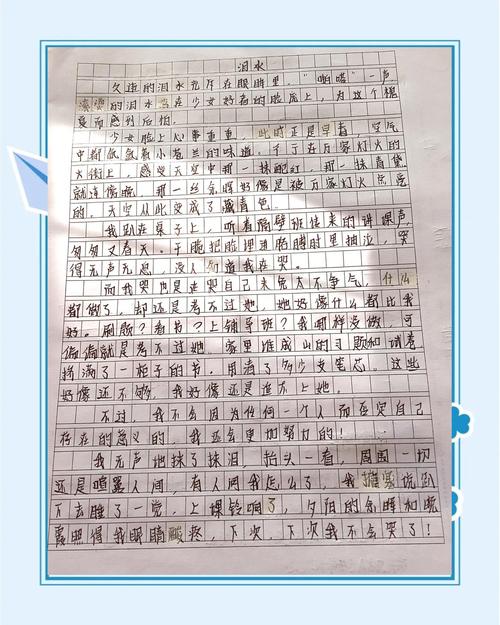 泪水
久违的泪水充斥在眼眶里，“啪嗒”一声，
滚烫的泪水落在少女好看的脸庞上，为这个根
感到后怕。
少女脸上心事重重，此时正是早春，空气
中都低氲着小苍兰的味道，走在万家灯火的
大街上，感受天空中那一抹配灯，那一抹青黛
就连傍晚，那一丝气晖好像是被万家灯火
的，天空从此变成了藏青色。
我趴在桌子上，听着隔壁班传来的讲课声，
匆匆又春天。干脆把脸埋进胳膊肘里抽泣，哭
得无声无息，没人知道我在哭。
而我哭也是在哭自己未免太不争气，什么
都做了，却还是考不过她，她好像什么都比我
好。刷题？看书？上辅导班？我哪样没做，可
偏偏就是考不过她。家里堆成山的习题和试卷，
挤满了一柜子的书，用满了多少支笔芯。这些
好像还不够，我好像还是追不上她。
不过，我不会因为任何一个人而否定自己
存在的意义的，我还会更加努力的！
我无声地抹了抹泪，抬头一看，周围一切
还是喧嚣人间，有人问我怎么了，我擁塞坑趴
下去睡了一觉，上课铃响了，夕阳的余晖和晚
霞照得我眼睛酸疼，下次，下次我不会哭了！